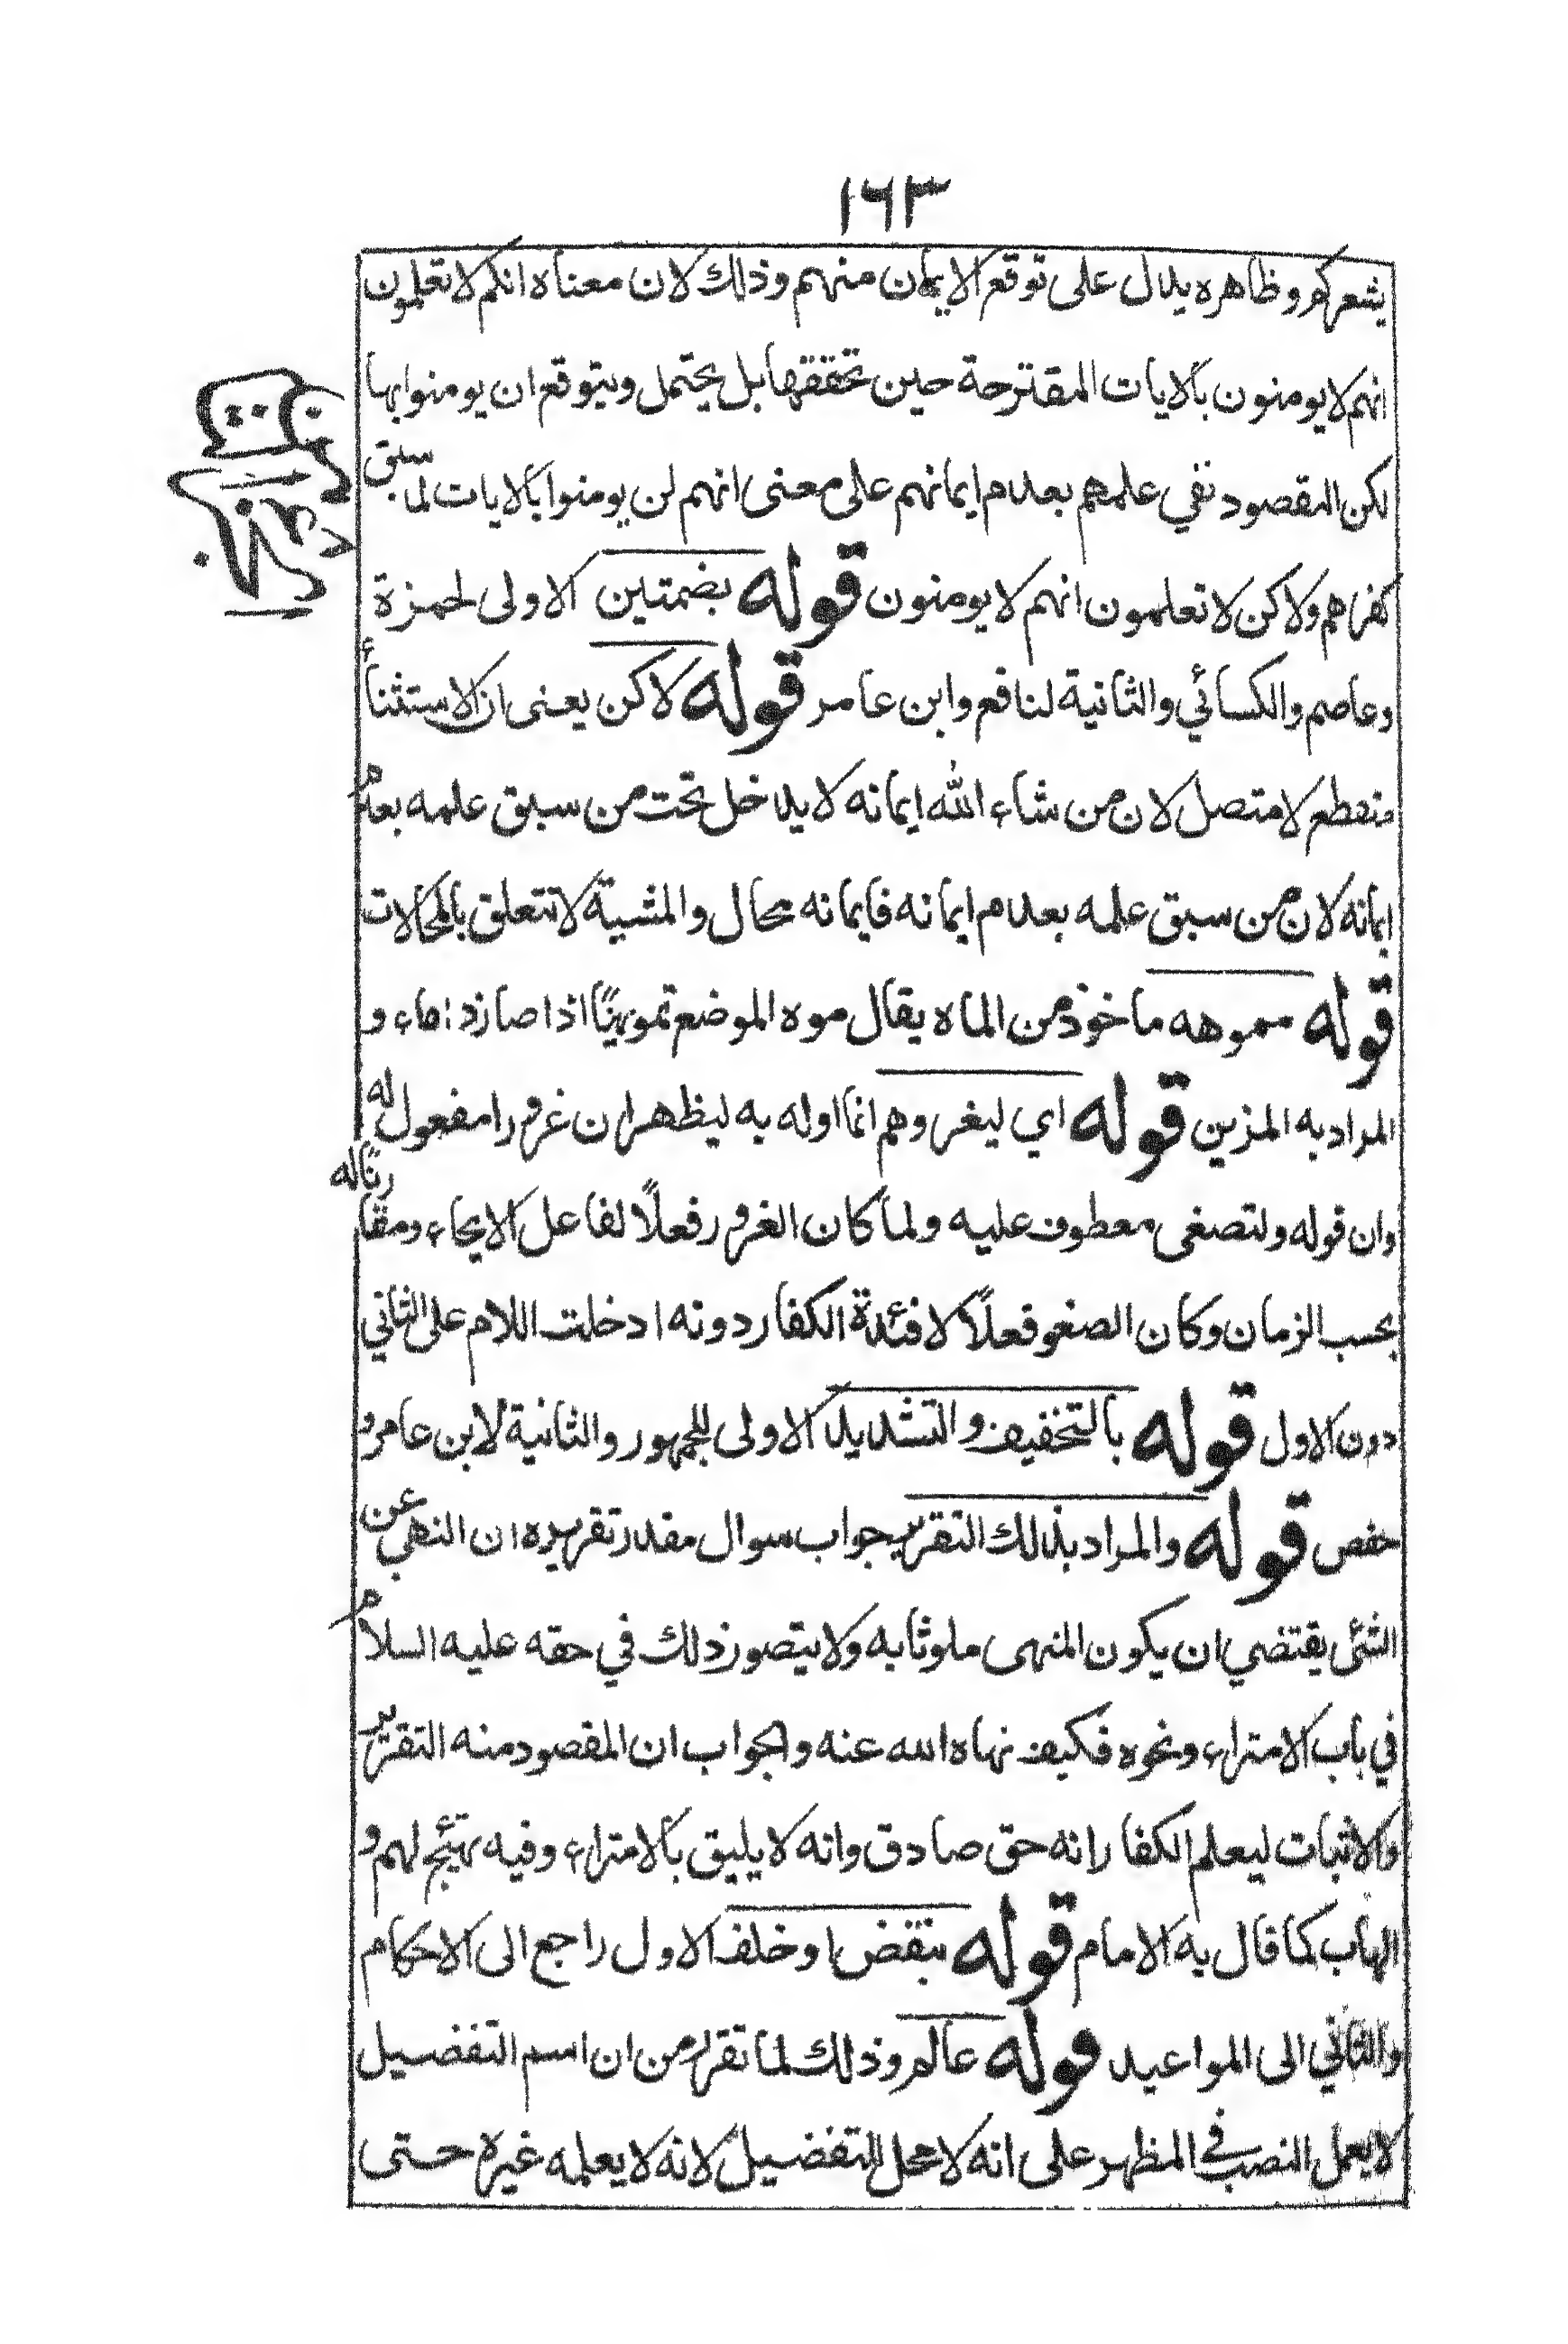 ١٦٣
يشعركم وظاهره يدل على توقع الايمان منهم وذلك لان معناه انكم لا تعلمون
انهم لا يومنون بالايات المقترحة حين تحققها بل يحتمل ويتوقع ان يومنوا بها
لكن المقصود نفي علمهم بعدم ايمانهم على معنى انهم لن يومنوا بالايات لما سبق
كفرهم ولاكن لا تعلمون انهم لا يومنون قوله بضمتين الاولى لحمزة
وعاصم والكسائي والثانية لنافع وابن عامر قوله لاكن يعنى ان الاستثناء
منقطع لا متصل لان من شاء الله ايمانه لا يدخل تحت من سبق علمه بعدم
ايمانه لان من سبق علمه بعدم ايمانه فايمانه محال والمشية لا تتعلق بالمحالات
قوله مموهه ماخوذ من الماه يقال موه الموضع تمويهًا اذا صار ذا ماء و
المراد به المزين قوله اي ليغروهم انما اوله به ليظهر ان غرورا مفعول له
وان قوله ولتصغى معطوف عليه ولما كان الغرور فعلًا لفاعل الايحاء ومقارنًا له
بحسب الزمان وكان الصغو فعلًا لافئدة الكفار دونه ادخلت اللام على الثاني
دون الاول قوله بالتخفيف والتشديد الاولى للجمهور والثانية لابن عامر و
حفص قوله والمراد بذلك التقرير جواب سوال مقدر تقريره ان النهي عن
الشئ يقتضي ان يكون المنهى ملوثا به ولا يتصور ذلك في حقه عليه السلام
في باب الامتراء ونحوه فكيف نهاه الله عنه والجواب ان المقصود منه التقرير
والاثبات ليعلم الكفار انه حق صادق وانه لا يليق بالامتراء وفيه تهئيج لهم و
الهاب كما قال به الامام قوله بنقض او خلف الاول راجع الى الاحكام
والثاني الى المواعيد قوله عالم وذلك لما تقرر من ان اسم التفضيل
لا يعمل النصب في المظهر على انه لا محل للتفضيل لانه لا يعلمه غيره حتى